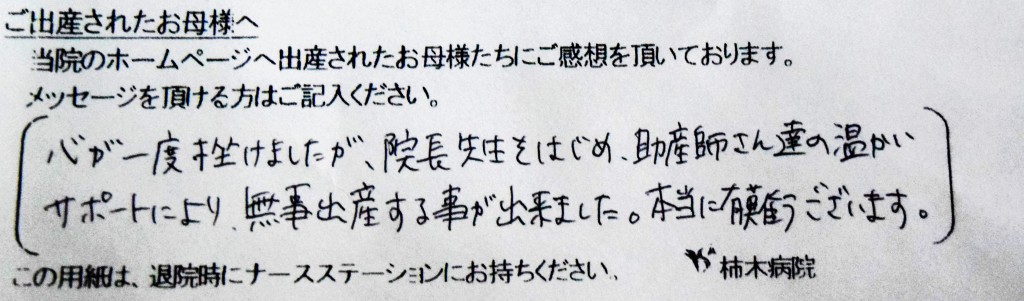 ご出産されたお母様へ
当院のホームページへ出産されたお母様たちにご感想を頂いております。
メッセージを頂ける方はご記入ください。
心が一度挫けましたが、院長先生をはじめ、助産師さん達の温かい
サポートにより、無事出産する事が出来ました。本当に有難うございます。
この用紙は、退院時にナースステーションにお持ちください。
柿木病院